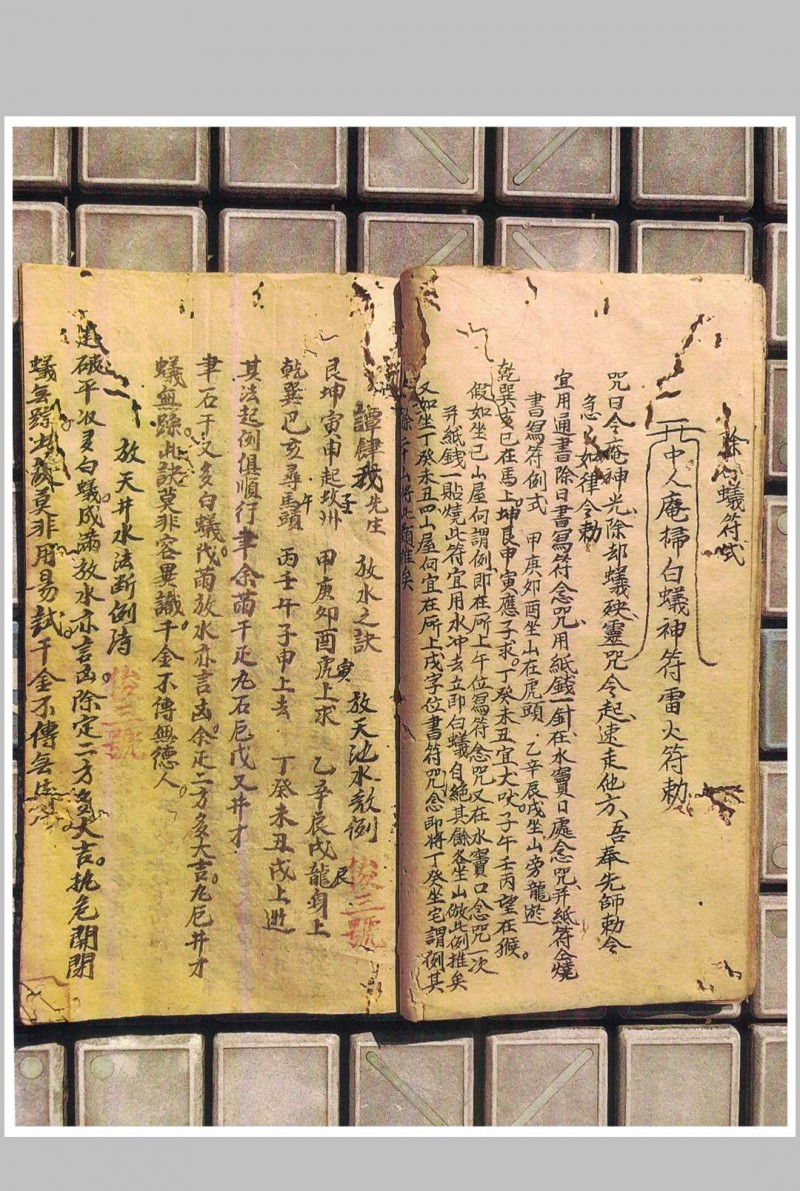 除白蟻符式
中人庵掃白蟻神符雷火符勅
咒曰今庵神光除却蟻殃靈咒令起速走他方、吾奉先師勅令
急如律令勅
宜用通書除日書寫符念咒用紙錢一針在水竇口處念咒并紙符仝燒
書寫符例式 甲庚夘酉坐山在虎頭 乙辛辰戌坐山旁龍遊
乾巽亥巳在馬上坤艮申寅應子求。丁癸未丑宜犬吠子午壬丙望在猴。
假如坐巳山屋向謂例即在所上午位寫符念咒又在水竇口念咒一次
并紙錢一貼燒此符宜用水冲去立即白蟻自絕其餘各坐山倣此例推矣
又如坐丁癸未丑四山屋向宜在所上戌字位書符咒念即將丁癸坐宅謂例其
餘二千山將此類推矣
譚肆我先生 放水之訣 放天池水放例
艮坤寅申起坎州子 甲庚夘酉虎上求寅 乙辛辰戌龍身上辰
乾巽巳亥尋馬頭午 丙壬午子申上去 丁癸未丑戌上遊
其法起例俱順行
蟻無踪此訣莫非容異識千金不傳無德人。
放天井水法斷例陪
建破平收多白蟻。成滿放水亦言凶。除定二方多大吉。执危開閉
蟻無踪此識莫非用易試千金不傳無
俊三號
俊三號